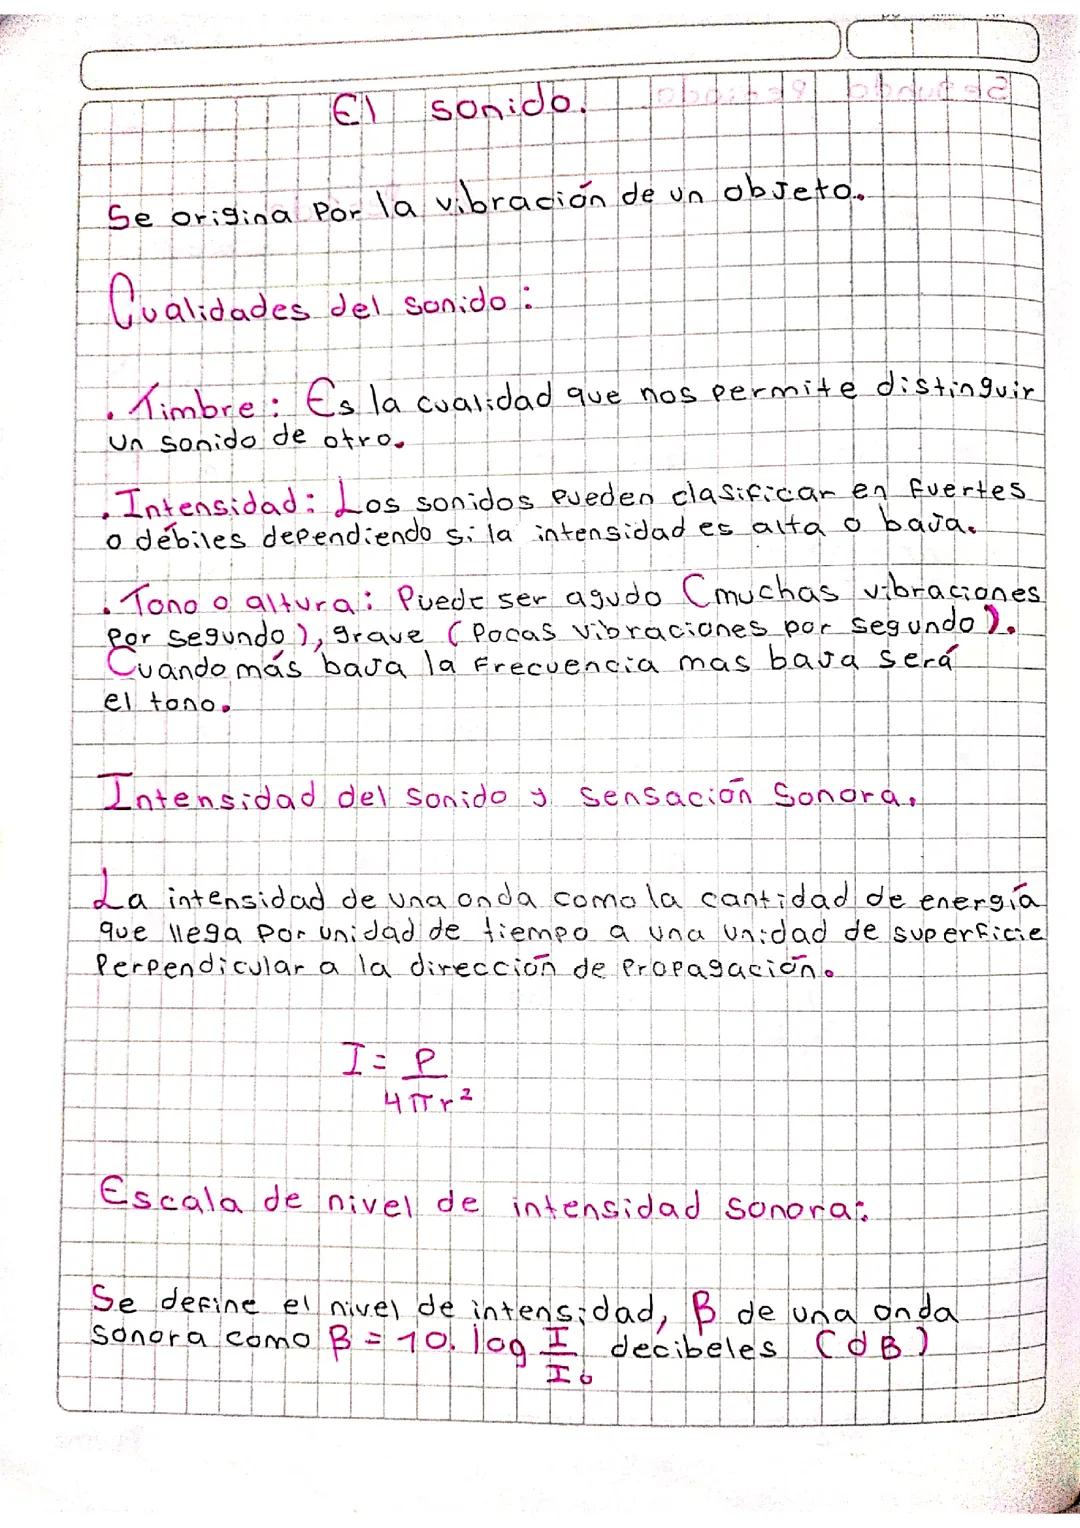 El sonido.
Se origina por la vibración de un objeto.
Cualidades del sonido:
. Timbre: Es la cualidad que nos permite distinguir
un sonido de otro.
. Intensidad: Los sonidos pueden clasificar en fuertes
o débiles dependiendo si la intensidad es alta o baja.
. Tono o altura: Puede ser agudo (muchas vibraciones
por segundo), grave (pocas vibraciones por segundo).
Cuando más baja la frecuencia mas baja será
el tono.
Intensidad del sonido y sensación sonora.
La intensidad de una onda como la cantidad de energía
que llega por unidad de tiempo a una unidad de superficie
perpendicular a la dirección de propagación.
I = P
4πr²
Escala de nivel de intensidad sonora:
Se define el nivel de intensidad, β de una onda
sonora como β = 10. log I decibeles (dB)
I₀